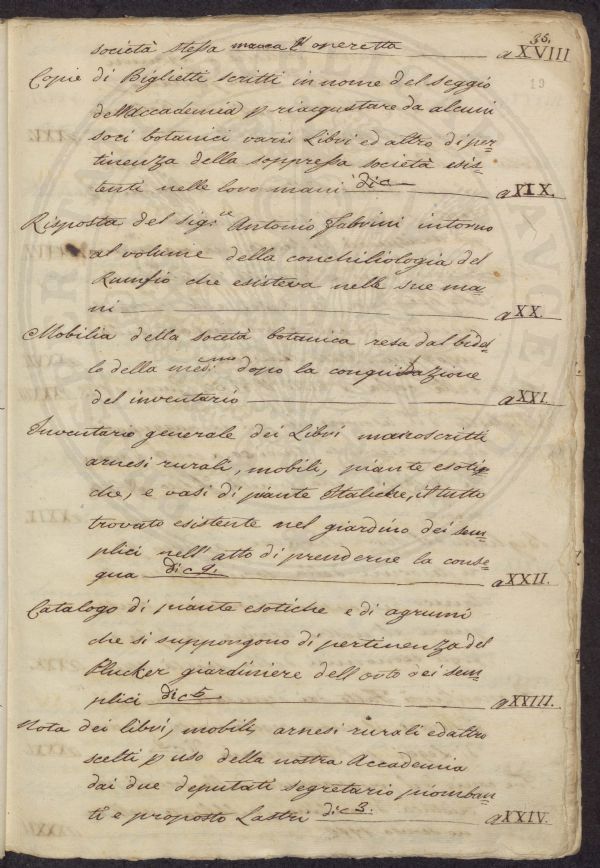 35.
19
società stessa manca l'operetta a XVIII
Copie di Biglietti scritti in nome del seggio
dell'Accademia p riacqustare da alcuni
soci botanici varii Libri ed altro di per=
tinenza della soppressa società esis=
tenti nelle loro mani a XIX.
Risposta del sig.re Antonio Fabrini intorno
al volume della conchiliologia del
Rumfio che esisteva nelle sue ma
ni a XX.
Mobilia della società botanica resa dal bide
lo della med.ma dopo la
del inventario a XXI.
Inventario generale dei Libri manoscritti
arnesi rurali, mobili, piante esoti=
che, e vasi di piante Italiche, il tutto
trovato esistente nel giardino dei sem=
plici nell'atto di prenderne la conse=
gna dic 9. a XXII.
Catalogo di piante esotiche e di agrumi
che si suppongono di pertinenza del
Plucker giardiniere dell'orto dei sem=
plici dic 5 a XXIII.
Nota dei libri, mobili, arnesi rurali ed altro
scelti p uso della nostra Accademia
dai due deputati segretario piomban=
ti e proposto Lastri dic 3. a XXIV.